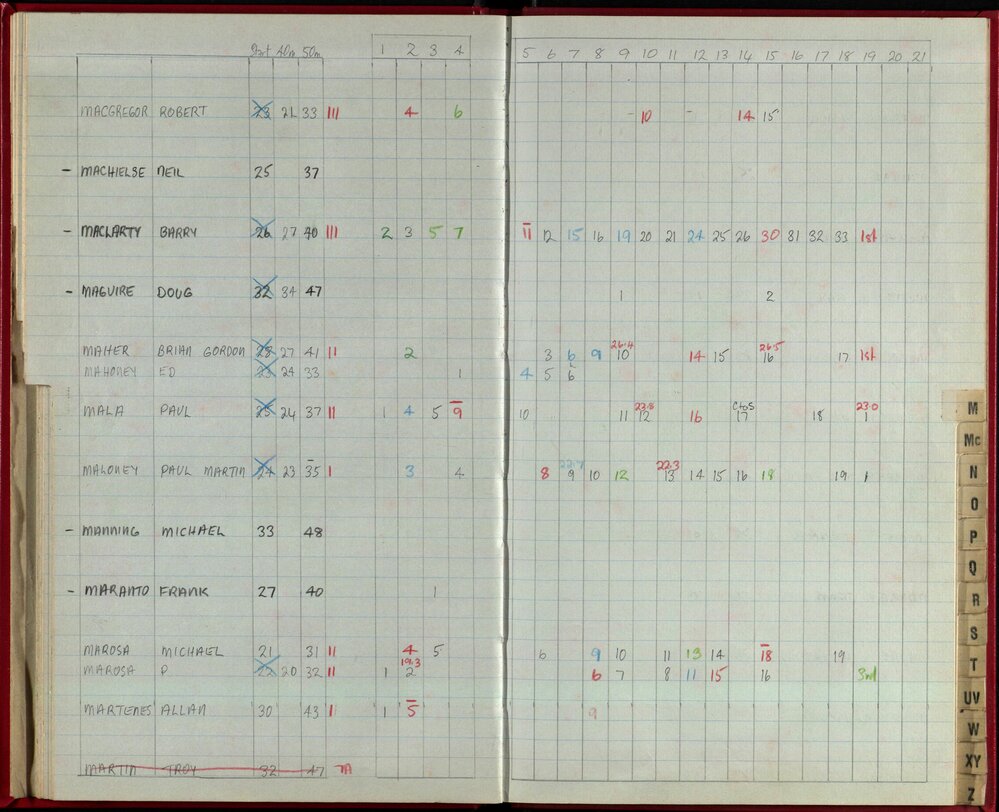 40m 50m 1 2 3 4 5 6 7 8 9 10 11 12 13 14 15 16 17 18 19 20 21
MACGREGOR ROBERT 23 21 33 III 4 6 - 10 - 14 15
- MACHIELSE NEIL 25 37
- MACLARTY BARRY 26 27 40 III 2 3 5 7 11 12 15 16 19 20 21 24 25 26 30 31 32 33 1st
- MAGUIRE DOUG 32 34 47 1 2
26.4 26.5
MAHER BRIAN GORDON 28 27 41 II 2 3 6 9 10 14 15 16 17 1st
MAHONEY ED 23 24 33 1 4 5 6
22.8 CtoS 23.0
MALA PAUL 25 24 37 II 1 4 5 9 10 11 12 16 17 18 1
22.7 22.3
MALONEY PAUL MARTIN 24 23 35 I 3 4 8 9 10 12 13 14 15 16 18 19 1
- MANNING MICHAEL 33 48
- MARANTO FRANK 27 40 1
MAROSA MICHAEL 21 31 II 4 5 6 9 10 11 13 14 18 19
19.3
MAROSA P 22 20 32 II 1 2 6 7 8 11 15 16 3rd
MARTENES ALLAN 30 43 I 1 5 9
MARTIN TROY 32 47 TA
M
Mc
N
O
P
Q
R
S
T
UV
W
XY
Z